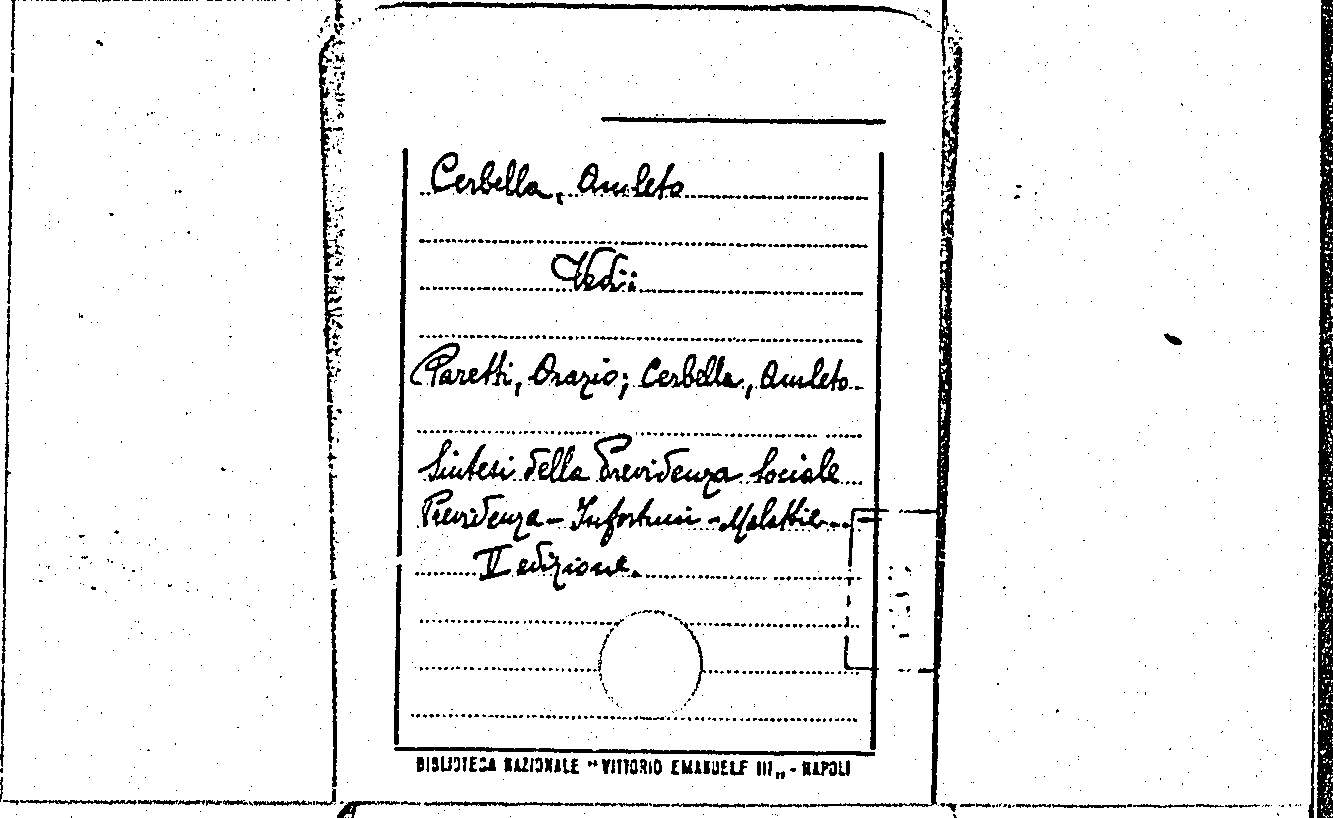 Cerbella, Amleto
Vedi:
Paretti, Orazio; Cerbella, Amleto.
Sintesi della Previdenza Sociale
Previdenza - Infortuni - Malattie...
II edizione.
BIBLIOTECA NAZIONALE "VITTORIO EMANUELE III„ - NAPOLI